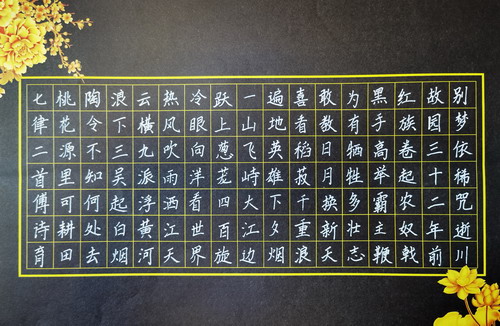 别梦依稀咒逝川
故园三十二年前
红旗卷起农奴戟
黑手高举霸主鞭
为有牺牲多壮志
敢教日月换新天
喜看稻菽千重浪
遍地英雄下夕烟
一山飞峙大江边
跃上葱茏四百旋
冷眼向洋看世界
热风吹雨洒江天
云横九派浮黄河
浪下三吴起白烟
陶令不知何处去
桃花源里可耕田
七律二首傅诗育